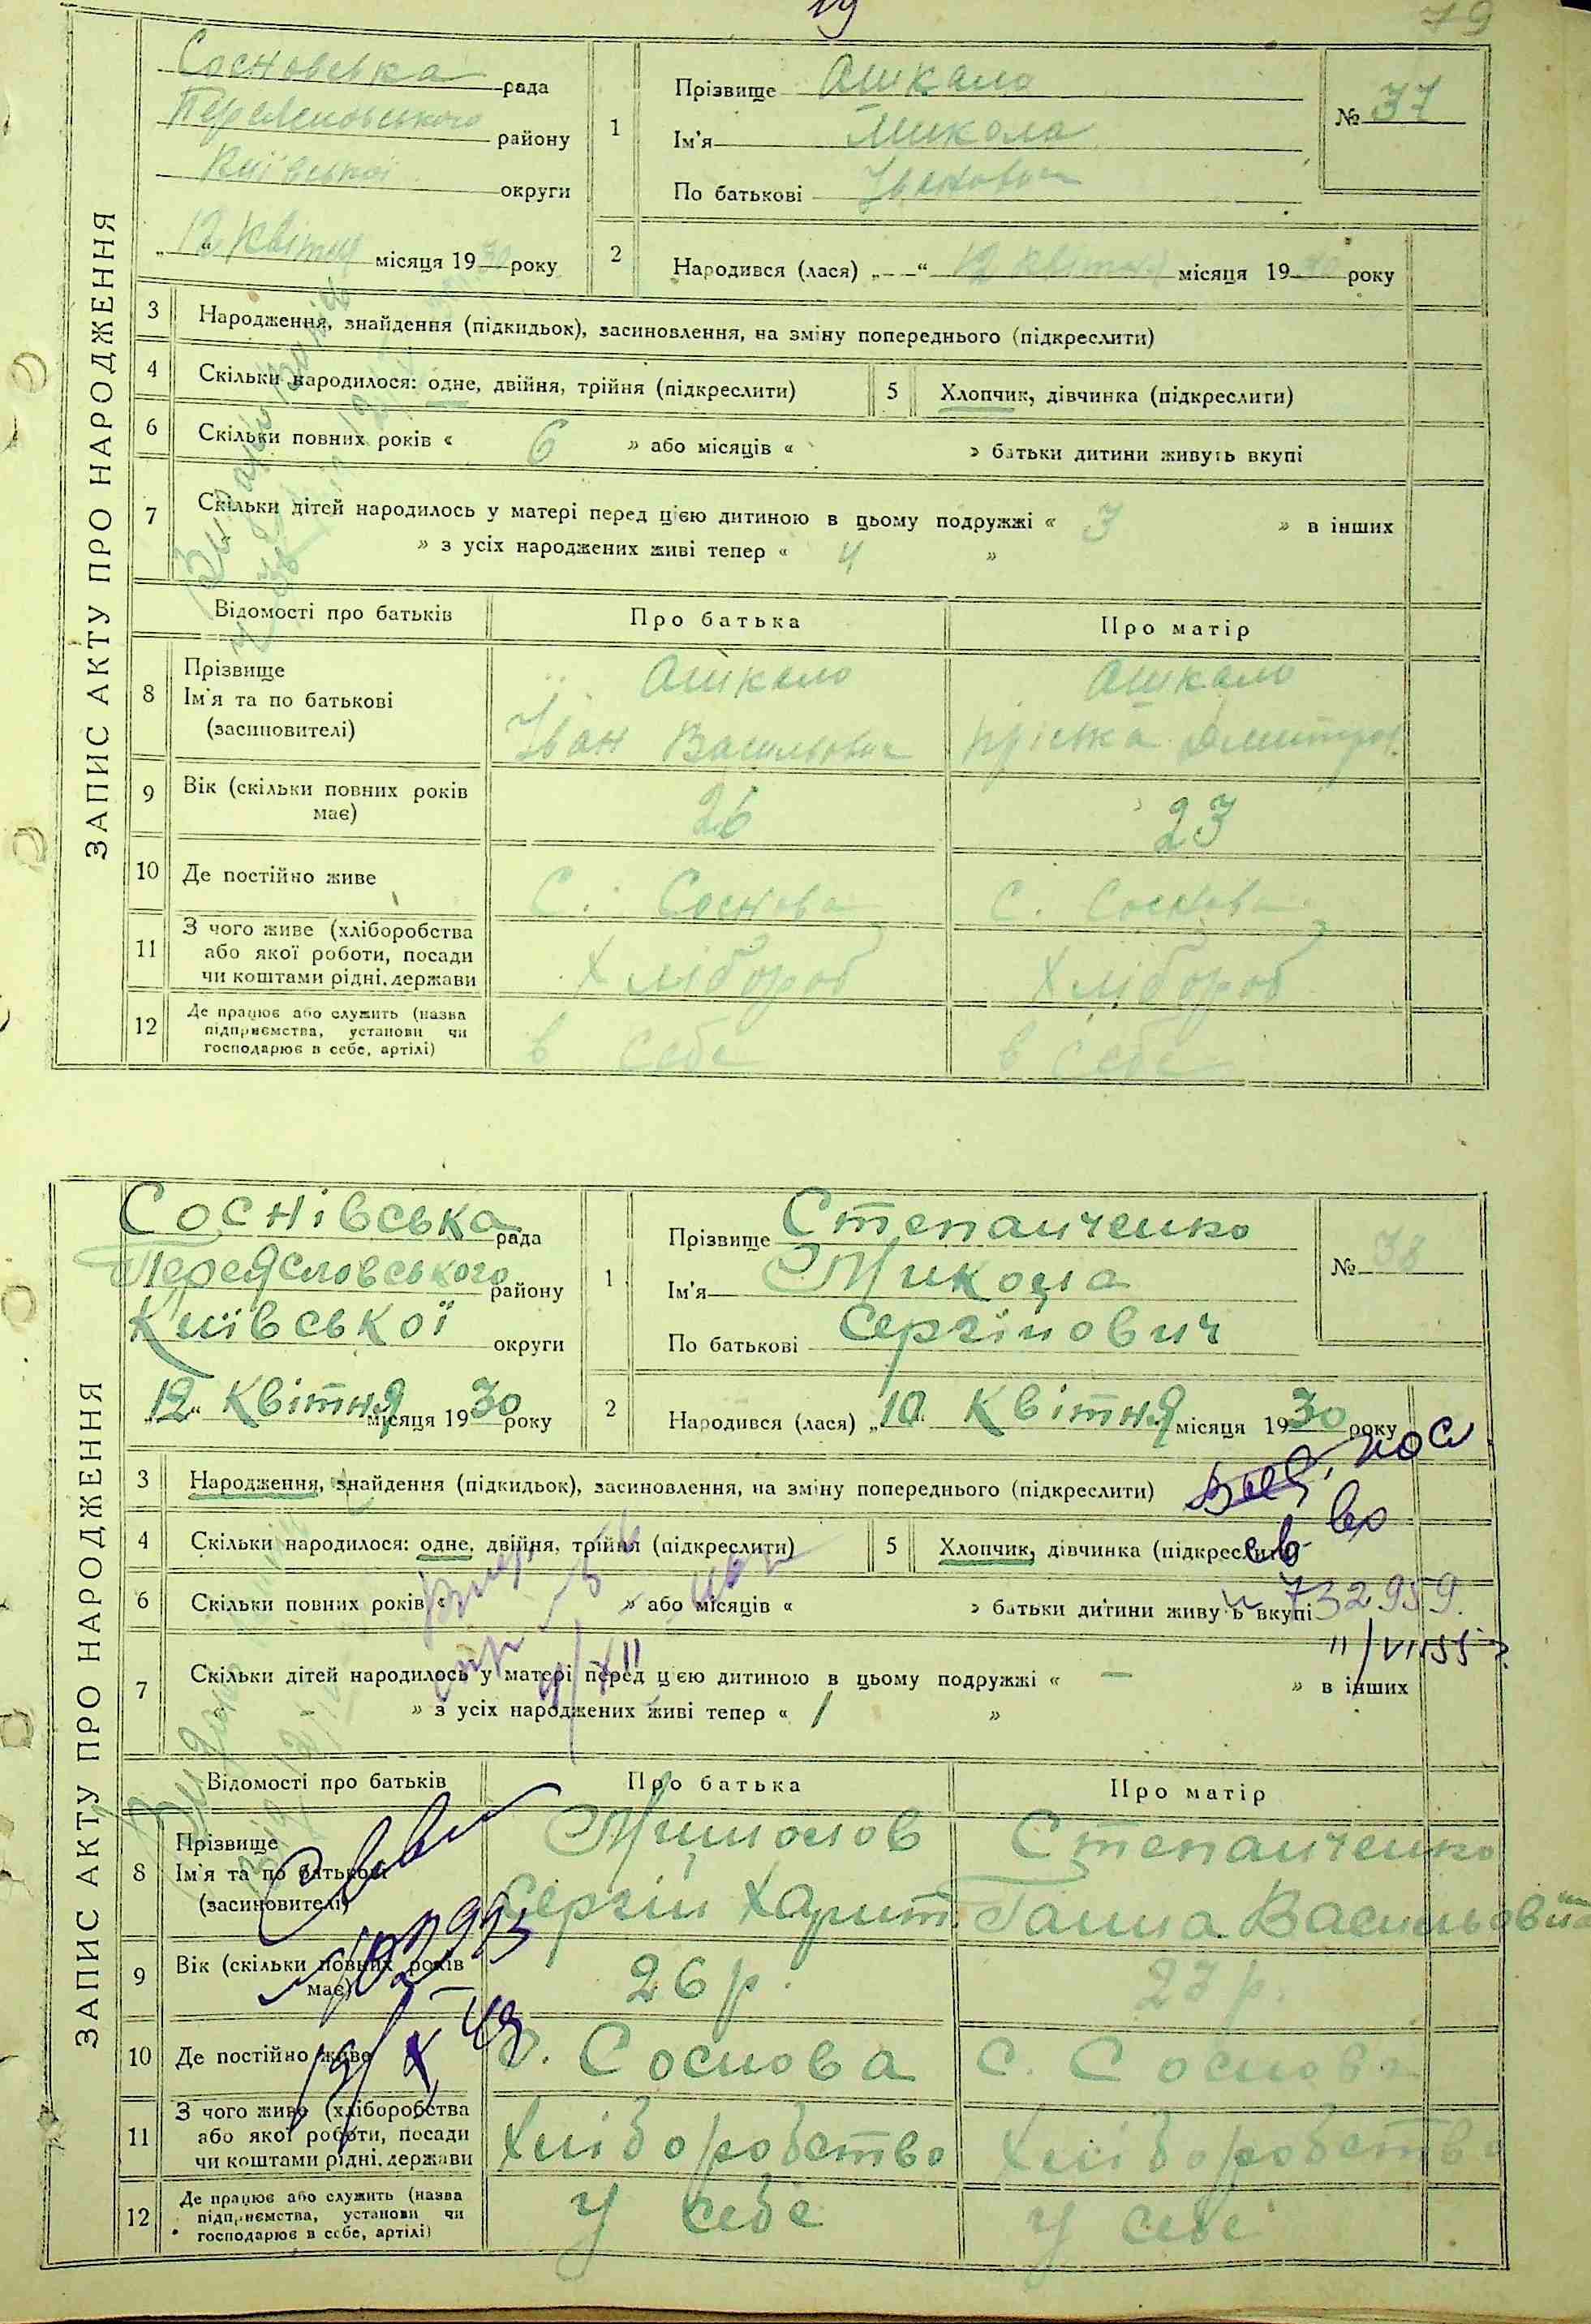 19
79
ЗАПИС АКТУ ПРО НАРОДЖЕННЯ
Сосновська рада
району
Київської округи
„12 квітня місяця 1930 року
1
Прізвище Ашкало
Ім'я Микола
По батькові Іванович
№ 37
2
Народився (лася) „— —“ 12 квітня місяця 1930 року
3 Народження, знайдення (підкидьок), засиновлення, на зміну попереднього (підкреслити)
4 Скільки народилося: одне, двійня, трійня (підкреслити)
5 Хлопчик, дівчинка (підкреслити)
6 Скільки повних років « 6 » або місяців « » батьки дитини живуть вкупі
7 Скільки дітей народилось у матері перед цією дитиною в цьому подружжі « 3 » в інших
» з усіх народжених живі тепер « 4 »
Відомості про батьків
Про батька
Про матір
8 Прізвище
Ім'я та по батькові
(засиновителі)
Ашкало
Іван Васильович
Ашкало
Пріська Дмитров.
9 Вік (скільки повних років
має)
26
23
10 Де постійно живе
С. Соснова
С. Соснова
11 З чого живе (хліборобства
або якої роботи, посади
чи коштами рідні, держави
Хлібороб
Хлібороб
12 Де працює або служить (назва
підприємства, установи чи
господарює в себе, артілі)
в себе
в себе
ЗАПИС АКТУ ПРО НАРОДЖЕННЯ
Соснівська рада
Переясловського району
Київської округи
„12“ квітня місяця 1930 року
1
Прізвище Степанченко
Ім'я Микола
По батькові Сергійович
№ 38
2
Народився (лася) „10“ квітня місяця 1930 року
3 Народження, знайдення (підкидьок), засиновлення, на зміну попереднього (підкреслити)
4 Скільки народилося: одне, двійня, трійня (підкреслити)
5 Хлопчик, дівчинка (підкреслити)
6 Скільки повних років « » або місяців « » батьки дитини живуть вкупі
732959.
11/VI 55 г.
7 Скільки дітей народилось у матері перед цією дитиною в цьому подружжі « — » в інших
» з усіх народжених живі тепер « 1 »
Відомості про батьків
Про батька
Про матір
8 Прізвище
Ім'я та по батькові
(засиновителі)
Сергій Харит.
Степанченко
Ганна Васильовна
9 Вік (скільки повних років
має)
26 р.
23 р.
10 Де постійно живе
с. Соснова
с. Соснова
11 З чого живе (хліборобства
або якої роботи, посади
чи коштами рідні, держави
Хліборобство
Хліборобство
12 Де працює або служить (назва
підприємства, установи чи
господарює в себе, артілі)
У себе
У себе